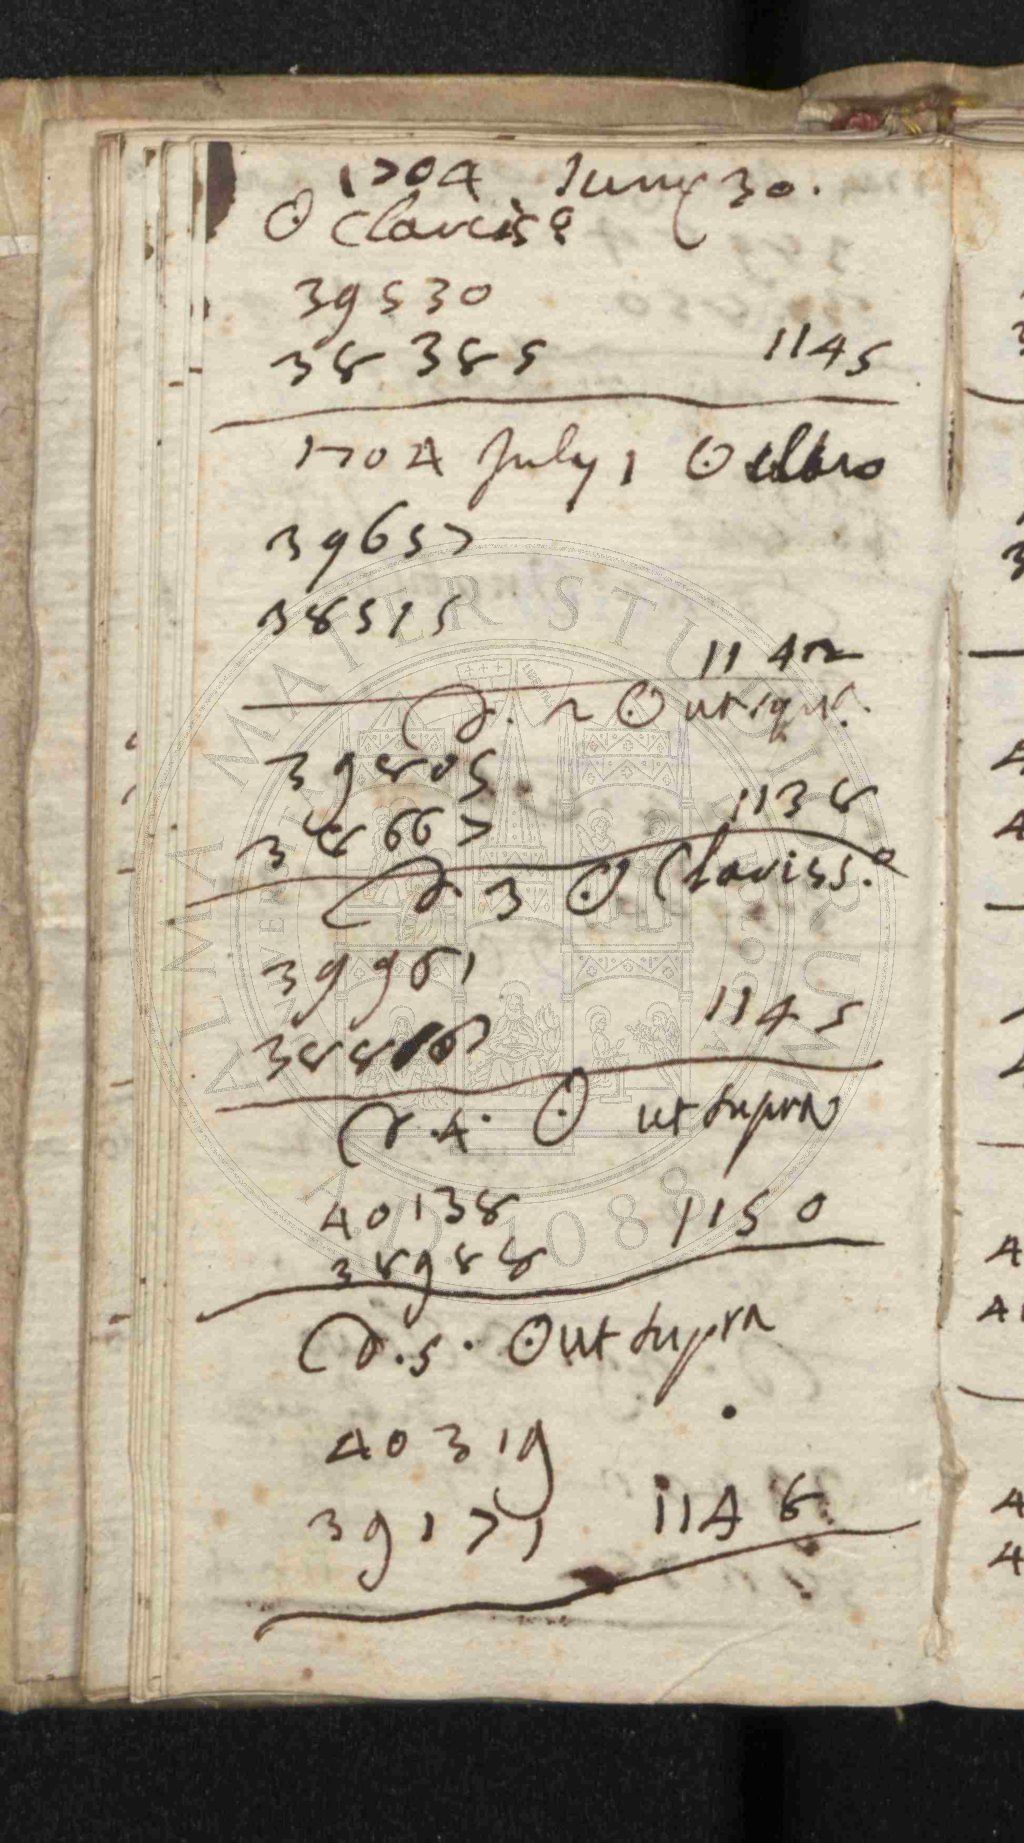 1704 Iuny 30.
☉ Clariss°
39530
38385 1145
1704 July 1 ☉
39657
38515
1142
D. 2 ☉ ut
39805
38667 1138
D. 3 ☉ Clariss.°
39961
1145
D. 4. ☉ ut supra
40138 1150
38988
D. 5. ☉ ut supra
40319
39171 1146
ALMA MATER STUDIORUM
A.D. 1088